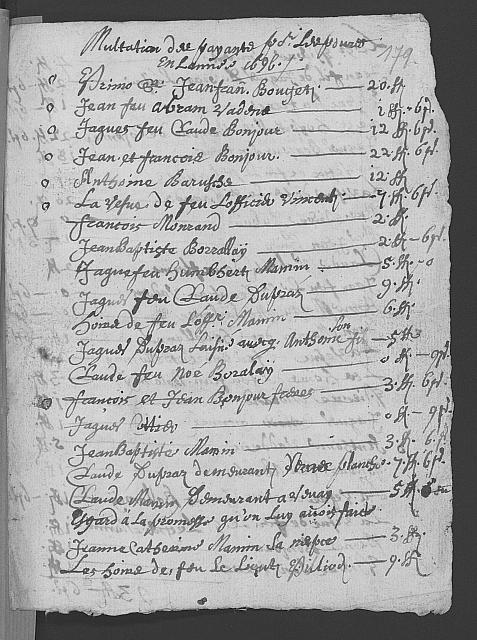 179.
Mutation des payants pr. Les pours
En Lannee 1696.
o Primo Jean fran. Bougeti — 20. ff
o Jean feu abram Vadene — 1 ff - 6 d.
o Jaques feu Claude Bonjour — 12 ff. 6 d.
o Jean et francois Bonjour. — 22 ff. 6 d.
o Anthoine Barusche — 12 ff
o La vefue de feu Lofficier Vincent — 7 ff. 6 d.
francois Monrand — 2. ff
Jean Baptiste Borralay — 2. ff - 6 d.
Jaque feu Humbhert Mamin — 5. ff. - 0
Jaques feu Claude Dupraz — 9. ff
Hoirs de feu Loffr. Mamin — 6. ff
Jaques Dupraz avecq Anthoine Son filz — 5 ff
Claude feu Noe Boralay — 0 ff - 9 d.
francois et Jean Bonjour freres — 3. ff. 6 d.
Jaques — 0 ff - 9 d.
Jean Baptiste Mamin — 3. ff. 6 d.
Claude Dupraz demeurant planche - 7. ff. 6 d.
Claude Mamin Demeurant a Vevay — 5 ff eu
Egard a La promesse qu'on Luy avoit faite
Jeanne Catherine Mamin La niepce — 3. ff
Les hoirs de feu Le Lieut. Pilliod. — 9. ff